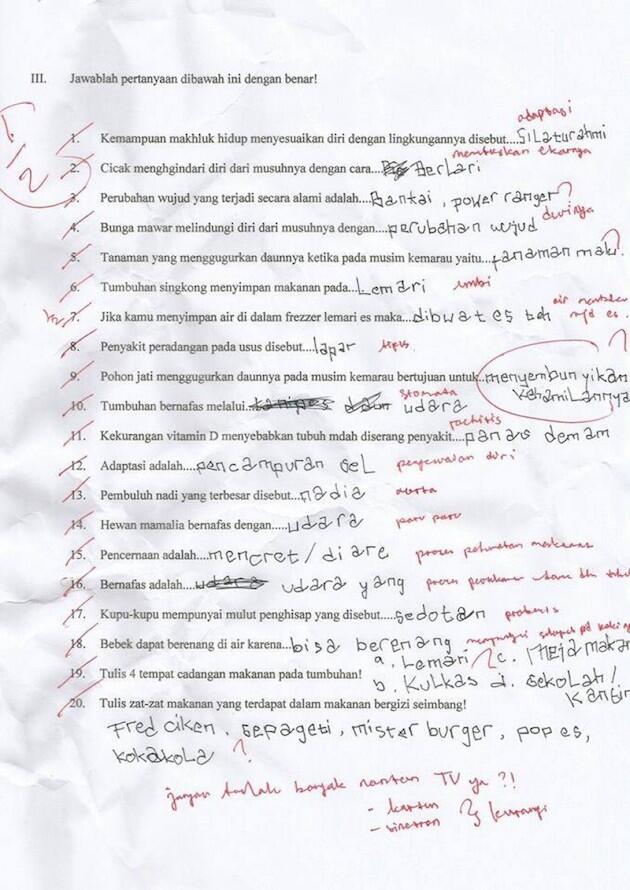 III. Jawablah pertanyaan dibawah ini dengan benar!
adaptasi
1. Kemampuan makhluk hidup menyesuaikan diri dengan lingkungannya disebut....Silaturahmi
memutuskan ekornya
2. Cicak menghgindari diri dari musuhnya dengan cara... Berlari
3. Perubahan wujud yang terjadi secara alami adalah....Bantai, power ranger ?
durinya
4. Bunga mawar melindungi diri dari musuhnya dengan....perubahan wujud
5. Tanaman yang menggugurkan daunnya ketika pada musim kemarau yaitu...tanaman mati. ?
6. Tumbuhan singkong menyimpan makanan pada...Lemari umbi
air
7. Jika kamu menyimpan air di dalam frezzer lemari es maka...dibwat es teh mjd es.
8. Penyakit peradangan pada usus disebut....lapar tipus
9. Pohon jati menggugurkan daunnya pada musim kemarau bertujuan untuk..menyembunyikan ?
kehamilannya
stomata
10. Tumbuhan bernafas melalui... udara
rachitis
11. Kekurangan vitamin D menyebabkan tubuh mdah diserang penyakit....panas demam
12. Adaptasi adalah....pencampuran sel penyesuaian diri
13. Pembuluh nadi yang terbesar disebut...nadia aorta
14. Hewan mamalia bernafas dengan.....udara paru paru
15. Pencernaan adalah....mencret/diare proses pelumatan makanan
16. Bernafas adalah....udara udara yang proses
17. Kupu-kupu mempunyai mulut penghisap yang disebut....sedotan proboscis
18. Bebek dapat berenang di air karena...bisa berenang mempunyai selaput pd kaki nya
a. Lemari ? c. Meja makan
19. Tulis 4 tempat cadangan makanan pada tumbuhan!
b. Kulkas d. sekolah/
kantin
20. Tulis zat-zat makanan yang terdapat dalam makanan bergizi seimbang!
Fred ciken, sepageti, mister burger, pop es,
kokakola ?
jangan terlalu banyak nonton TV ya ?!
- kartun
- sinetron kurangi